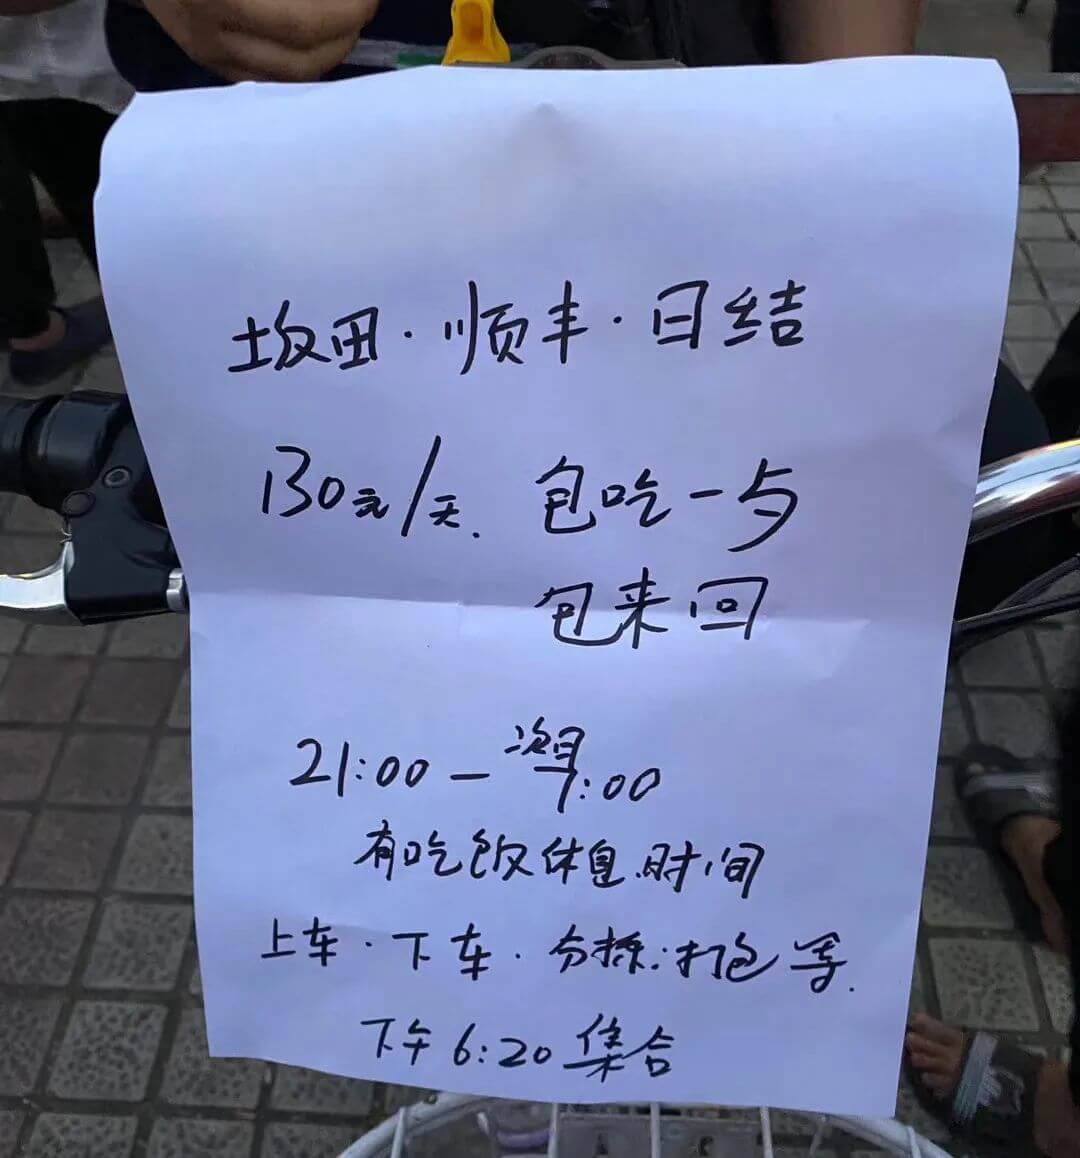 坂田·顺丰·日结
130元/天. 包吃一与
包来回
21:00—次日7:00
有吃饭休息时间
上车·下车·分拣·打包等.
下午6:20集合